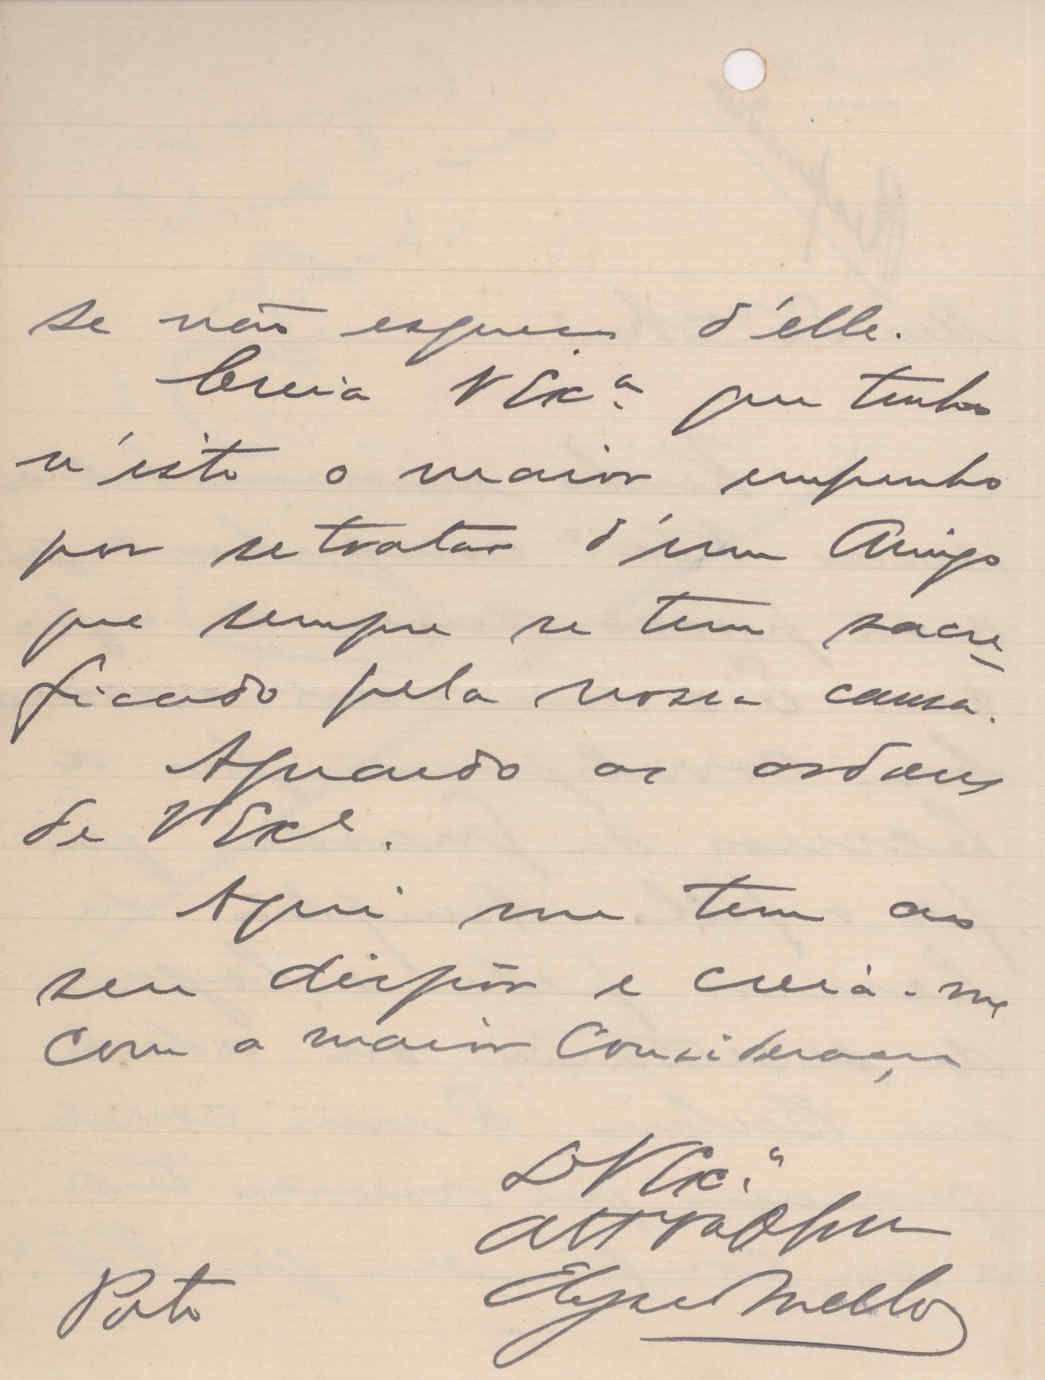 se não esqueça d'elle.
Creia V Exª. que tenho
n'isto o maior empenho
por se tratar d'um Amigo
que sempre se tem sacre-
ficado pela nossa causa.
Aguardo as ordens
de V Exª.
Aqui me tem ao
seu dispôr e creia-me
com a maior Consideração
D V Exª.
Mello
Porto